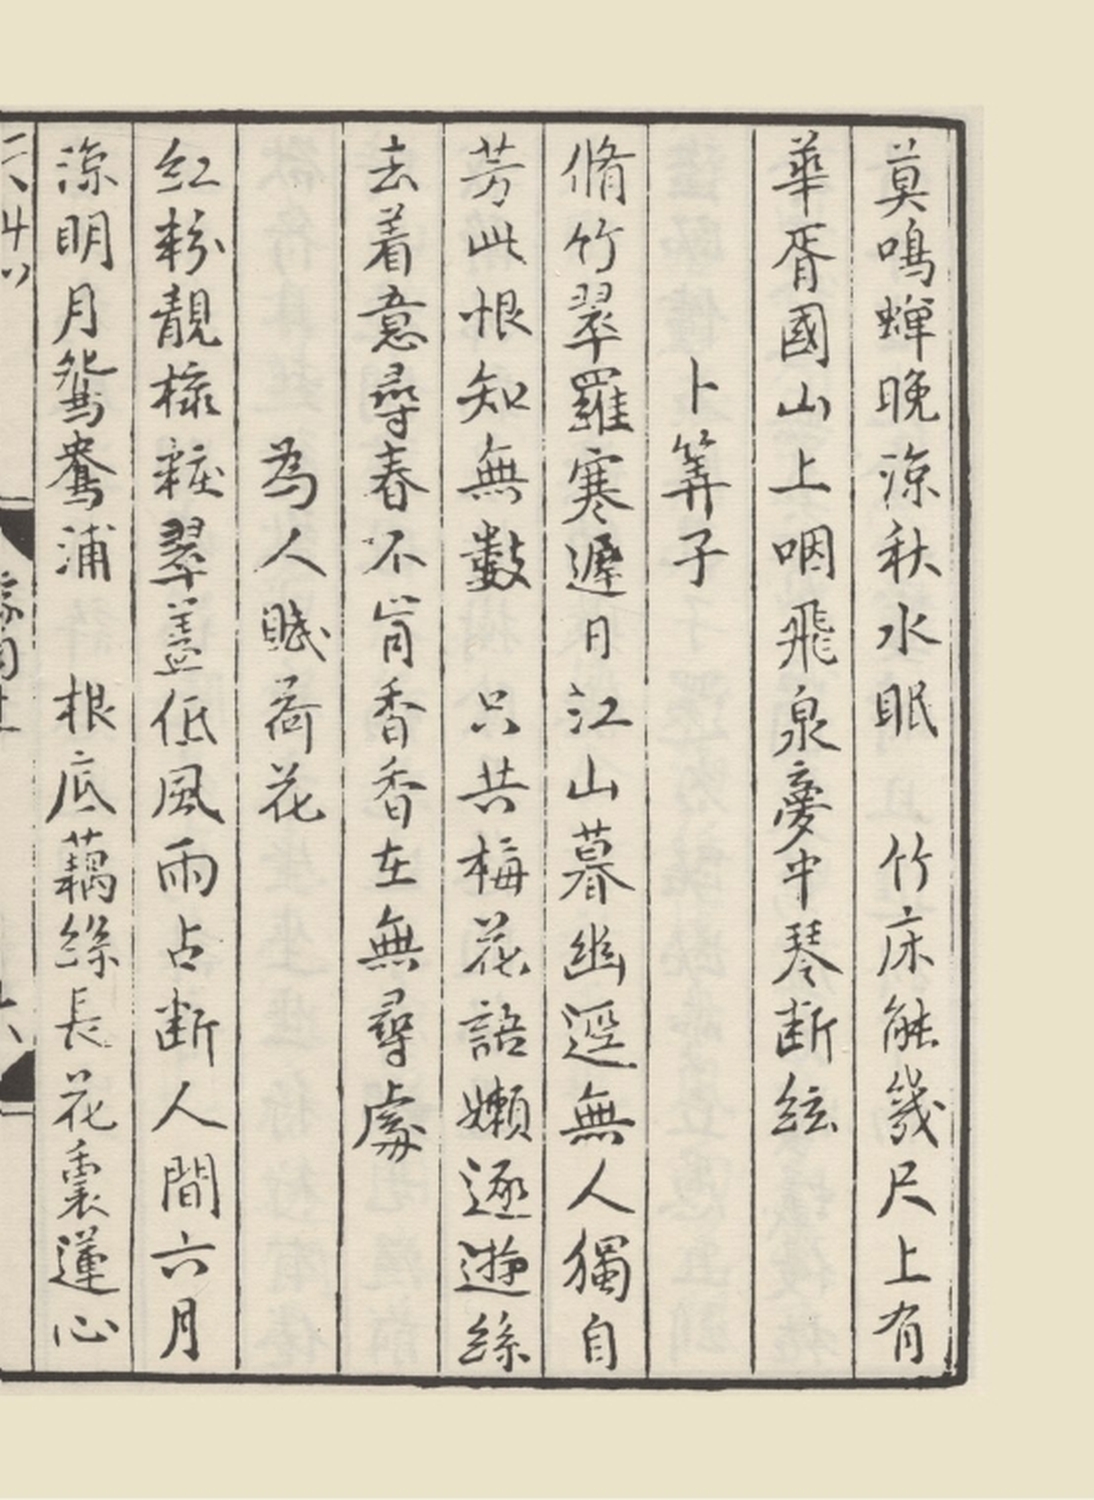 莫鳴蟬晚涼秋水眠　竹床能幾尺上有
華胥國山上咽飛泉夢中琹断絃
卜筭子
脩竹翠羅寒遲日江山暮幽逕無人獨自
芳此恨知無數　只共梅花語嬾逐遊絲
去着意尋春不肯香香在無尋處
為人賦荷花
紅粉靚樣粧翠盖低風雨占断人間六月
涼明月鴛鴦浦　根底藕絲長花裏蓮心